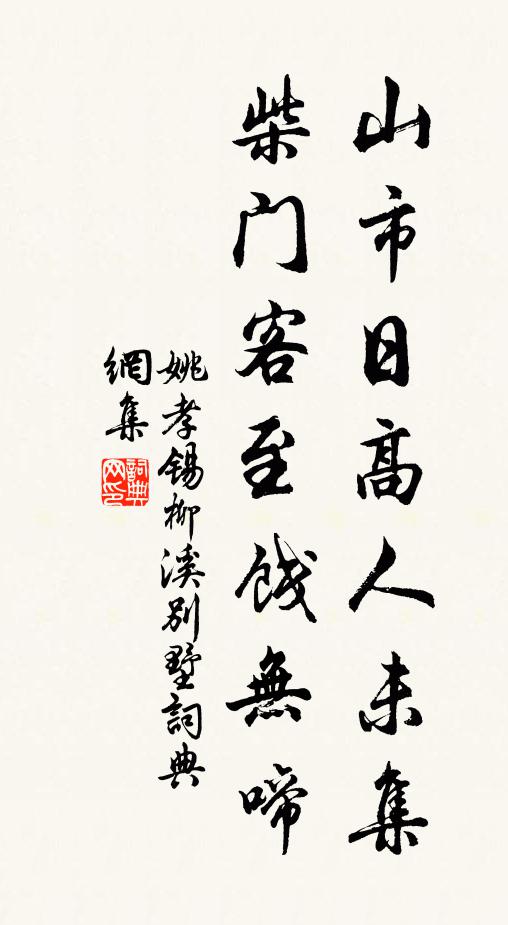 山市日高人未集
柴門客至餞無啼
姚孝錫柳溪別墅詞典
網集
詞典
网印